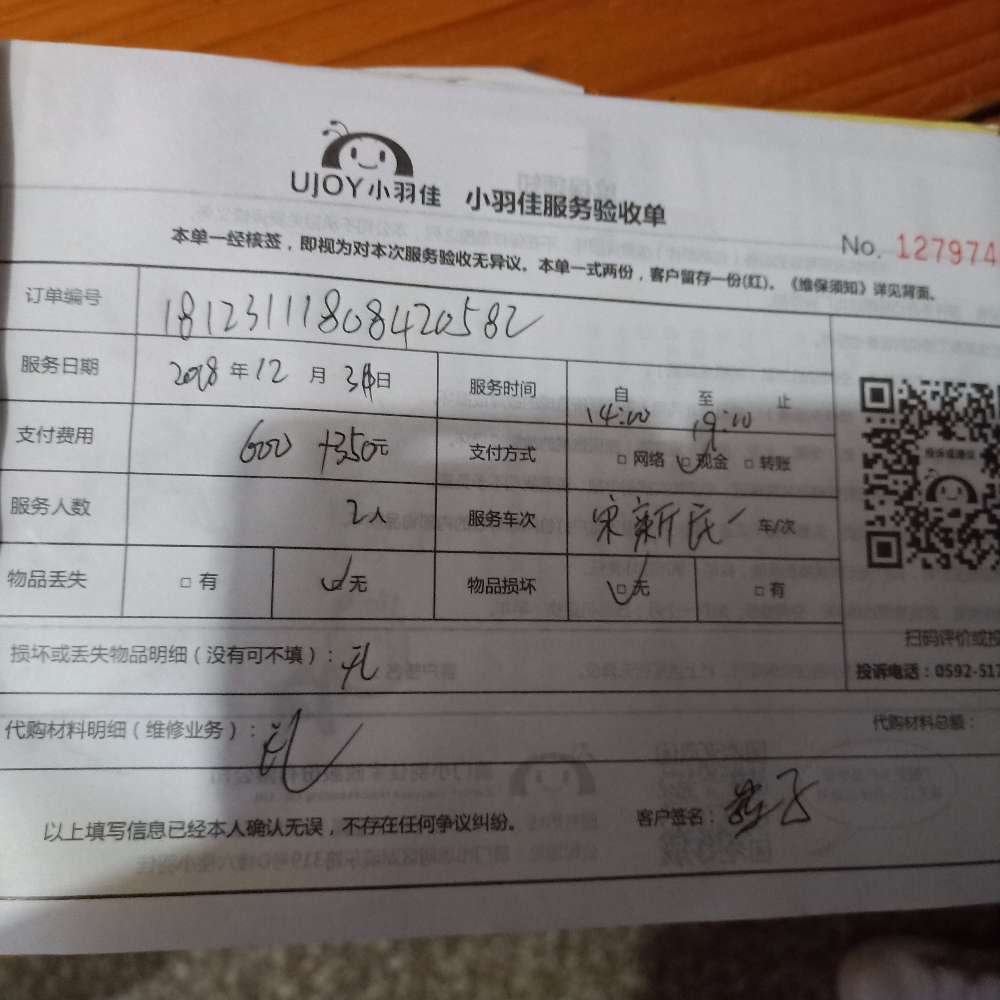 UJOY小羽佳 小羽佳服务验收单
No. 127974
本单一经核签，即视为对本次服务验收无异议。本单一式两份，客户留存一份(红)。《维保须知》详见背面。
订单编号 18123111808420582
服务日期 2018年12月31日 服务时间 自14:00 至19:10 止
支付费用 600 +350元 支付方式 □网络 □现金 □转账
服务人数 2人 服务车次 宋新民一 车/次
物品丢失 □有 □无 物品损坏 □无 □有
投诉或建议
扫码评价或投
投诉电话：0592-517
损坏或丢失物品明细（没有可不填）：无
代购材料明细（维修业务）：无
代购材料总额：
以上填写信息已经本人确认无误，不存在任何争议纠纷。 客户签名：